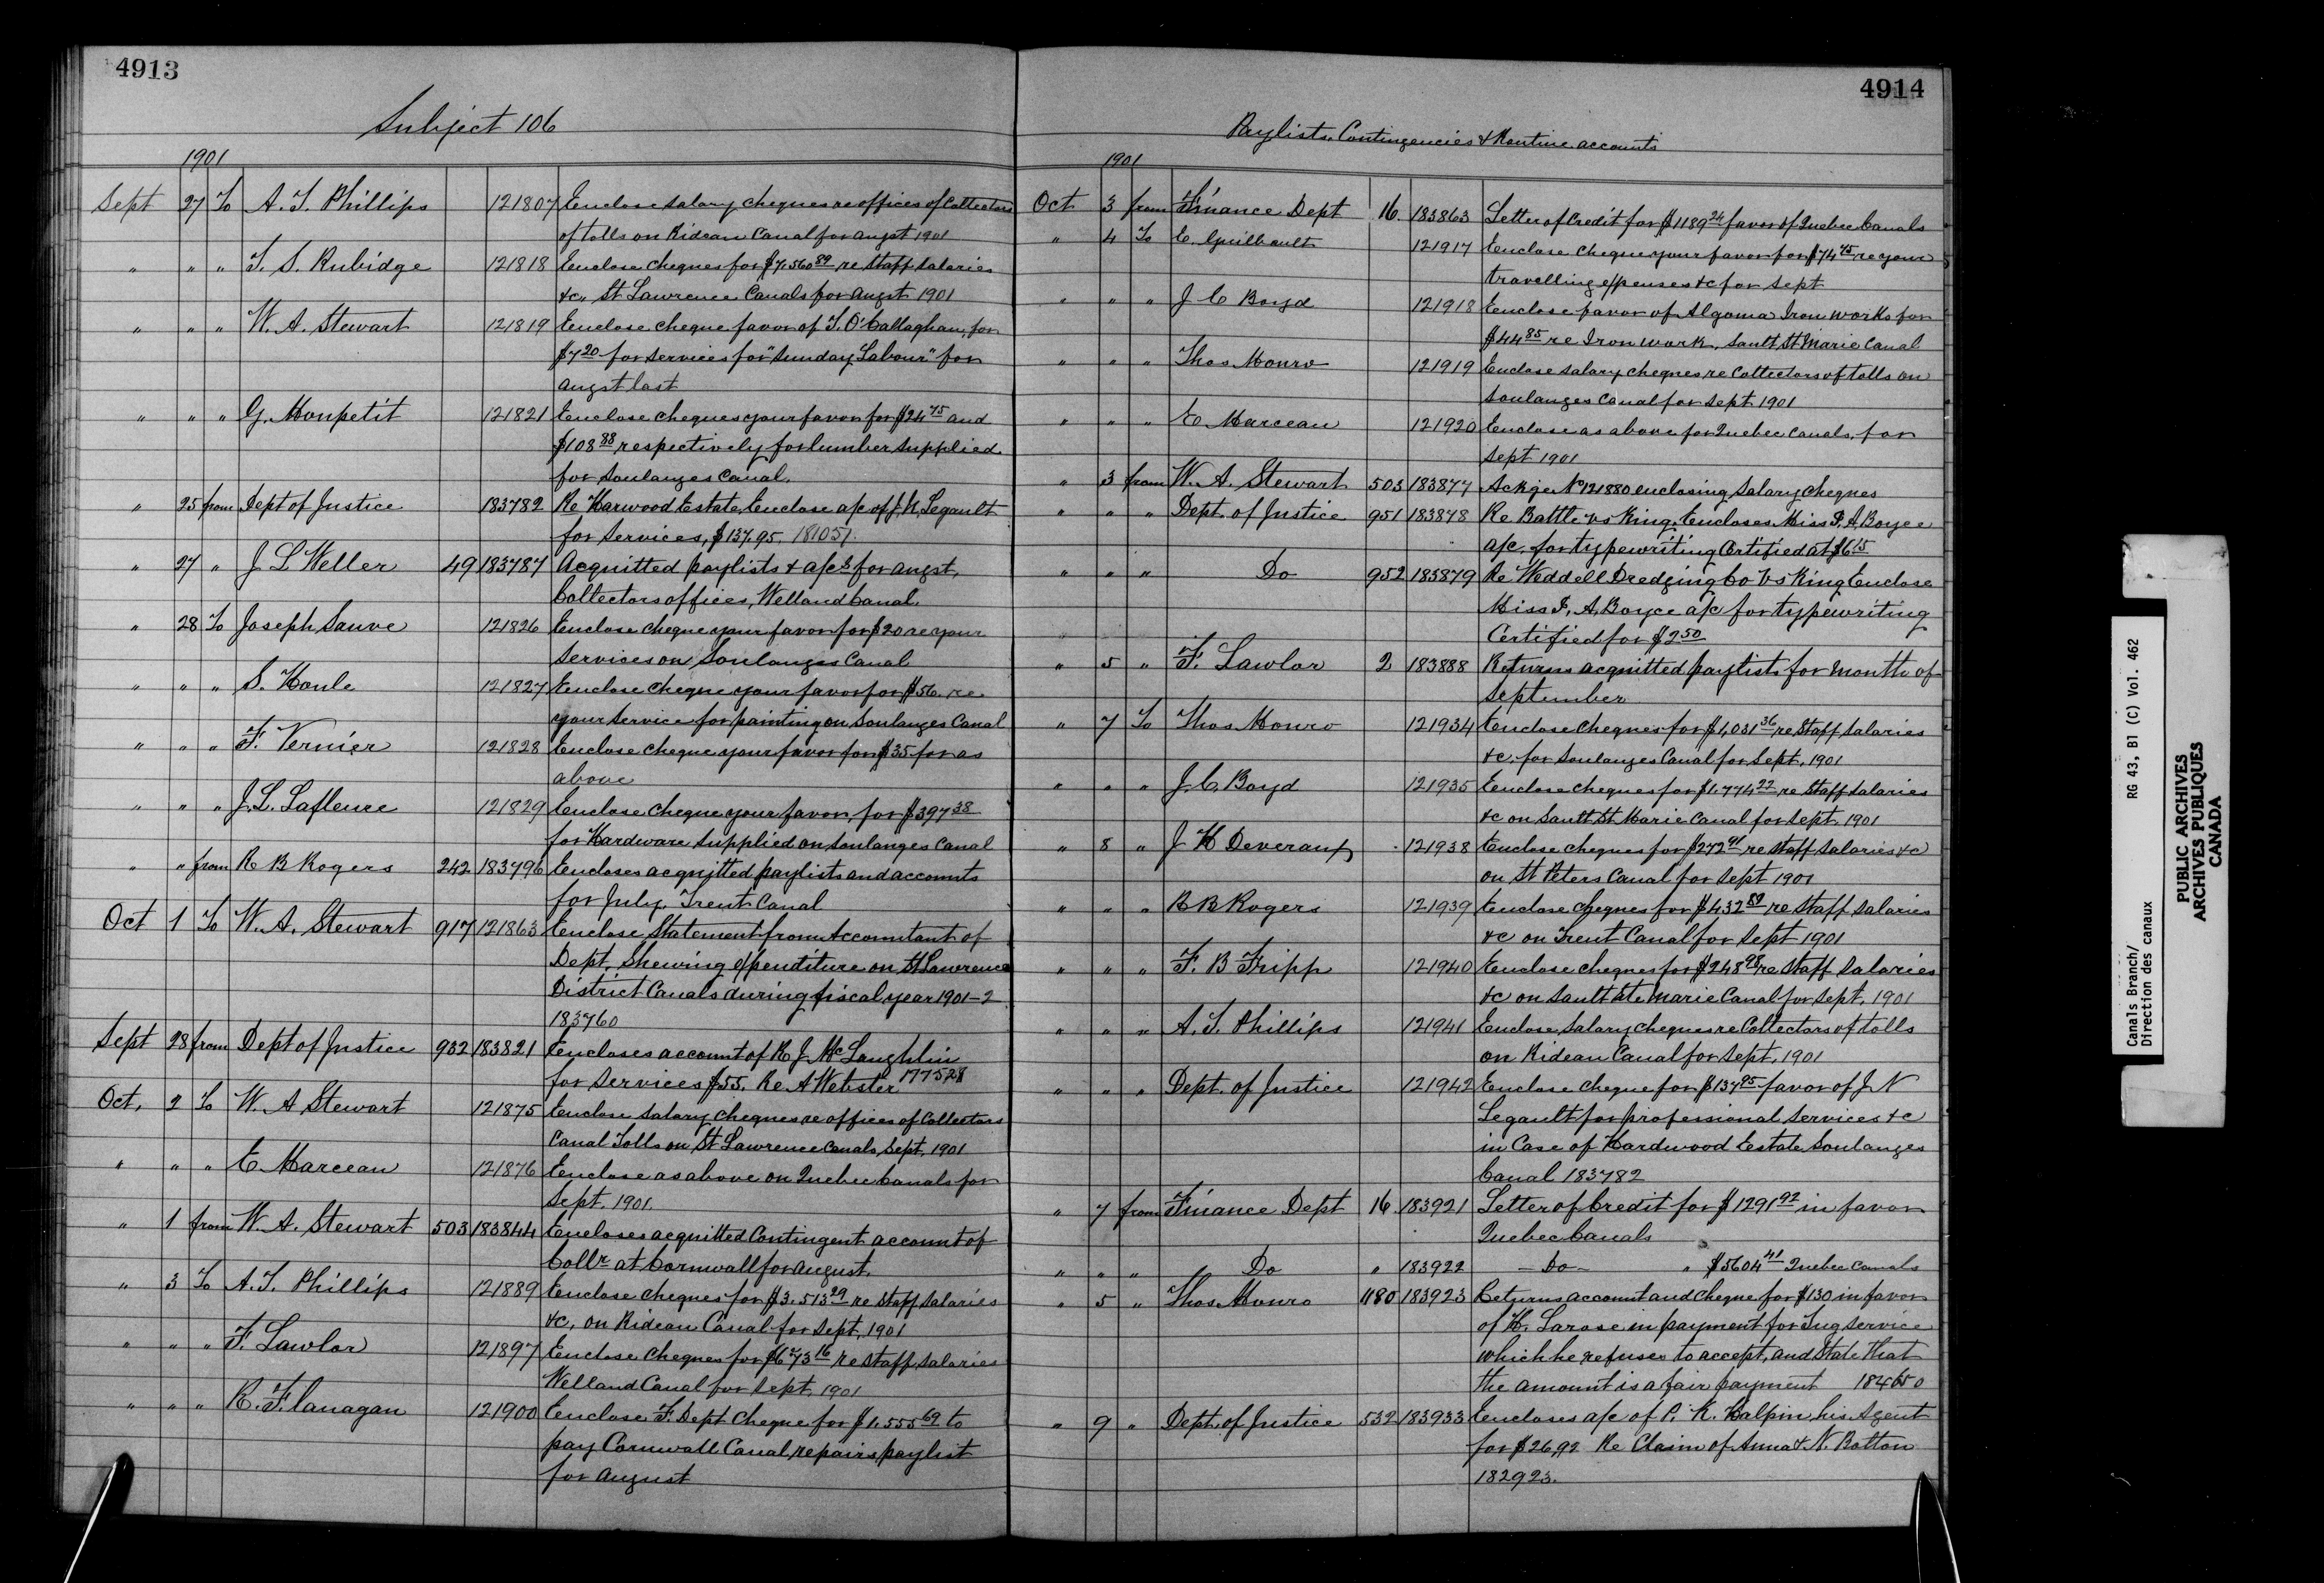 4913
Subject 106
1901
Sept 27 To A. T. Phillips 121807 Enclose salary cheques re offices of Collectors
of tolls on Rideau Canal for augst 1901
" " " T. S. Rubidge 121818 Enclose cheques for $7,560 89 re staff salaries
&c., St Lawrence Canals for augst 1901
" " " W. A. Stewart 121819 Enclose cheque favor of T. O'Callaghan, for
$7 20 for services for "Sunday Labour" for
augst last
" " " G. Monpetit 121821 Enclose cheques your favor for $24 75 and
$108 88 respectively for lumber supplied
for Soulanges Canal.
" 25 from Dept of Justice 183782 Re Harwood Estate, Enclose a/c of J. N. Legault
for services, $137.95 181051.
" 27 " J L Weller 49 183787 Acquitted paylists & a/cs for augst,
Collectors offices, Welland Canal.
" 28 To Joseph Sauve 121826 Enclose cheque your favor for $20 re your
services on Soulanges Canal
" " " S. Houle 121827 Enclose cheque your favor for $56. re
your service for painting on Soulanges Canal
" " " F. Vernier 121828 Enclose cheque your favor for $35 for as
above
" " " J. L. Lafleure 121829 Enclose cheque your favor, for $397 38
for Hardware supplied on Soulanges Canal
" " from R B Rogers 242 183796 Encloses acquitted paylists and accounts
for July, Trent Canal
Oct 1 To W. A. Stewart 917 121863 Enclose Statement from Accountant of
Dept, Shewing expenditure on St Lawrence
District Canals during fiscal year 1901-2
183760
Sept 28 from Dept of Justice 932 183821 Encloses account of R J. McLaughlin
for services $55. Re A Webster 177528
Oct. 2 To W. A Stewart 121875 Enclose salary cheques re offices of Collectors
Canal Tolls on St Lawrence Canals, Sept. 1901
" " " E. Marceau 121876 Enclose as above on Quebec Canals for
Sept. 1901
" 1 from W. A. Stewart 503 183844 Encloses acquitted Contingent account of
Collr at Cornwall for August.
" 3 To A. T. Phillips 121889 Enclose cheques for $3.513 29 re staff salaries
&c, on Rideau Canal for Sept, 1901
" " " F. Lawlor 121897 Enclose cheques for $6773 16 re staff salaries
Welland Canal for Sept. 1901
" " " R. Flanagan 121900 Enclose F. Dept cheque for $1.555 69 to
pay Cornwall Canal repairs paylist
for August
4914
Paylists, Contingencies & Routine accounts
1901
Oct 3 from Finance Dept 16. 183863 Letter of Credit for $1189 24 favor of Quebec Canals
" 4 To E. Guilbault 121917 Enclose cheque your favor for $74 45 re your
travelling expenses &c for Sept
" " " J C Boyd 121918 Enclose favor of Algoma Iron works for
$44 85 re Iron work, Sault St Marie Canal
" " " Thos Monro 121919 Enclose salary cheques re Collectors of tolls on
Soulanges Canal for Sept 1901
" " " E Marceau 121920 Enclose as above for Quebec Canals, for
Sept 1901
" 3 from W. A. Stewart 503 183877 Ackge No 121880 enclosing salary cheques
" " " Dept. of Justice 951 183878 Re Battle vs King, Encloses Miss I. A. Boyce
a/c. for typewriting Certified at $6 15
" " " Do 952 183879 Re Weddell Dredging Co vs King Enclose
Miss I. A. Boyce a/c for typewriting
Certified for $2 50
" 5 " F. Lawlor 2 183888 Returns acquitted paylist for month of
September
" 7 To Thos Monro 121934 Enclose cheques for $1,031 36 re staff salaries
&c, for Soulanges Canal for Sept, 1901
" " " J. C. Boyd 121935 Enclose cheques for $1.774 22 re staff salaries
&c on Sault St Marie Canal for Sept. 1901
" 8 " J H Deveraux 121938 Enclose cheques for $272 91 re staff salaries &c
on St Peters Canal for Sept 1901
" " " R B Rogers 121939 Enclose cheques for $432 89 re staff salaries
&c on Trent Canal for Sept 1901
" " " F. B Fripp 121940 Enclose cheques for $248 98 re staff salaries
&c on Sault Ste Marie Canal for Sept, 1901
" " " A. T. Phillips 121941 Enclose salary cheques re Collectors of tolls
on Rideau Canal for Sept, 1901
" " " Dept. of Justice 121942 Enclose cheque for $137 95 favor of J. N
Legault for professional services &c
in Case of Hardwood Estate Soulanges
Canal 183782
" 7 from Finance Dept 16 183921 Letter of Credit for $1291 92 in favor
Quebec Canals
" " " Do " 183922 - Do - " $5604 41 Quebec Canals
" 5 " Thos Monro 1180 183923 Returns account and cheque for $130 in favor
of H. Larose in payment for Tug service
which he refuses to accept, and State that
the amount is a fair payment 184650
" 9 " Dept. of Justice 532 183933 Encloses a/c of P. K. Halpin, his Agent
for $26.92 Re Claim of Anna & N. Botton
182923.
Canals Branch/
Direction des canaux
RG 43, B1 (C) Vol. 462
PUBLIC ARCHIVES
ARCHIVES PUBLIQUES
CANADA